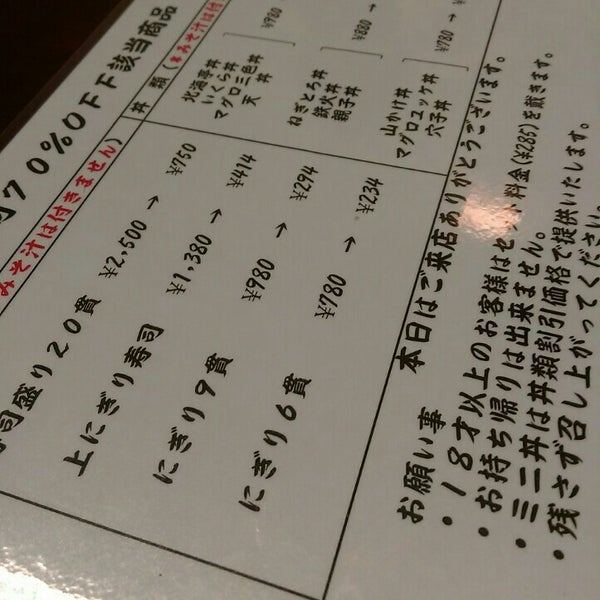 70%OFF該当商品
みそ汁は付きません)
司盛り20貫 ¥2,500 → ¥750
上にぎり寿司 ¥1,380 → ¥414
にぎり9貫 ¥980 → ¥294
にぎり6貫 ¥780 → ¥234
丼 類(※みそ汁は付
北海亭丼
いくら丼
マグロ三色丼
天 丼
¥980
ねぎとろ丼
鉄火丼
親子丼
¥880 →
山かけ丼
マグロユッケ丼
穴子丼
¥780 →
本日はご来店ありがとうございます。
お願い事
・18才以上のお客様は 料金(¥285)を戴きます。
・お持ち帰りは出来ません。
・ミニ丼は丼類割引価格で提供いたします。
・残さず召し上がってください。